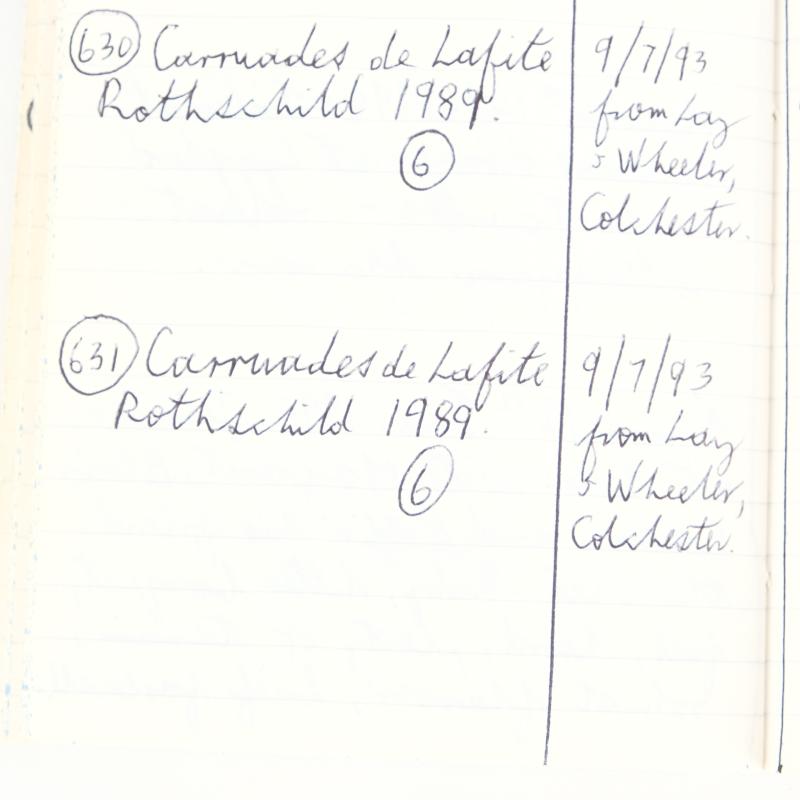 630 Carruades de Lafite
Rothschild 1989.
6
9/7/93
from Lay
& Wheeler,
Colchester.
631 Carruades de Lafite
Rothschild 1989.
6
9/7/93
from Lay
& Wheeler,
Colchester.